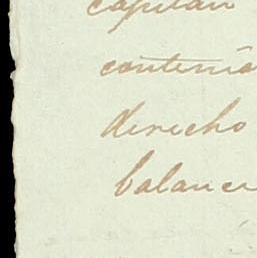 capitan
contenia
derecho
balance